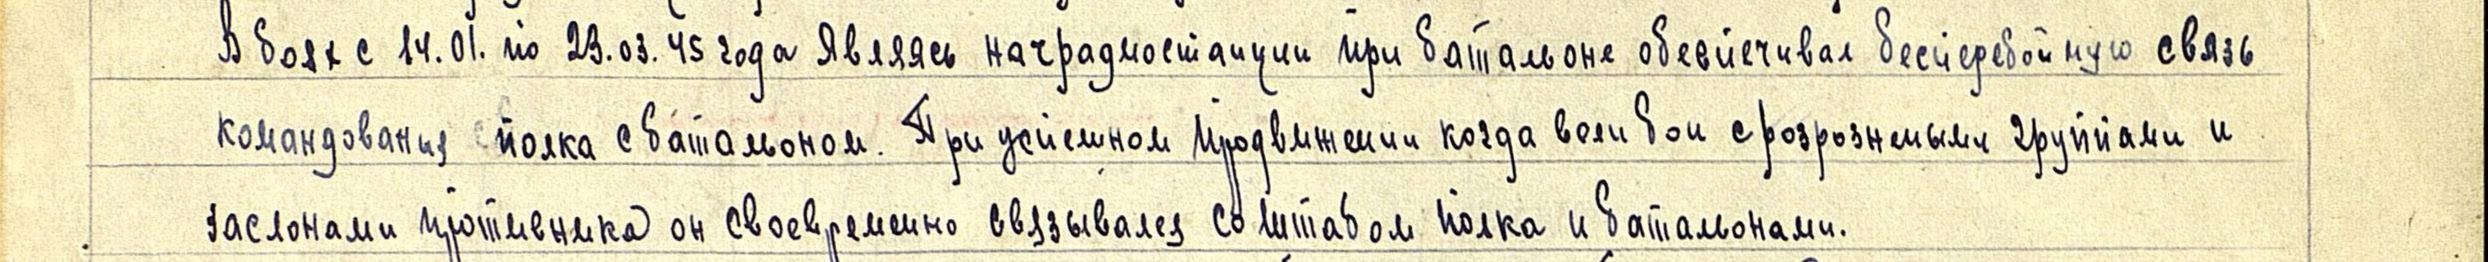 В боях с 14.01. по 23.03.45 года Являясь начрадиостанции при батальоне обеспечивал бесперебойную связь
командования полка с батальоном. При успешном продвижении когда вели бои с розрознеными группами и
заслонами противника он своевременно связывался со штабом полка и батальонами.